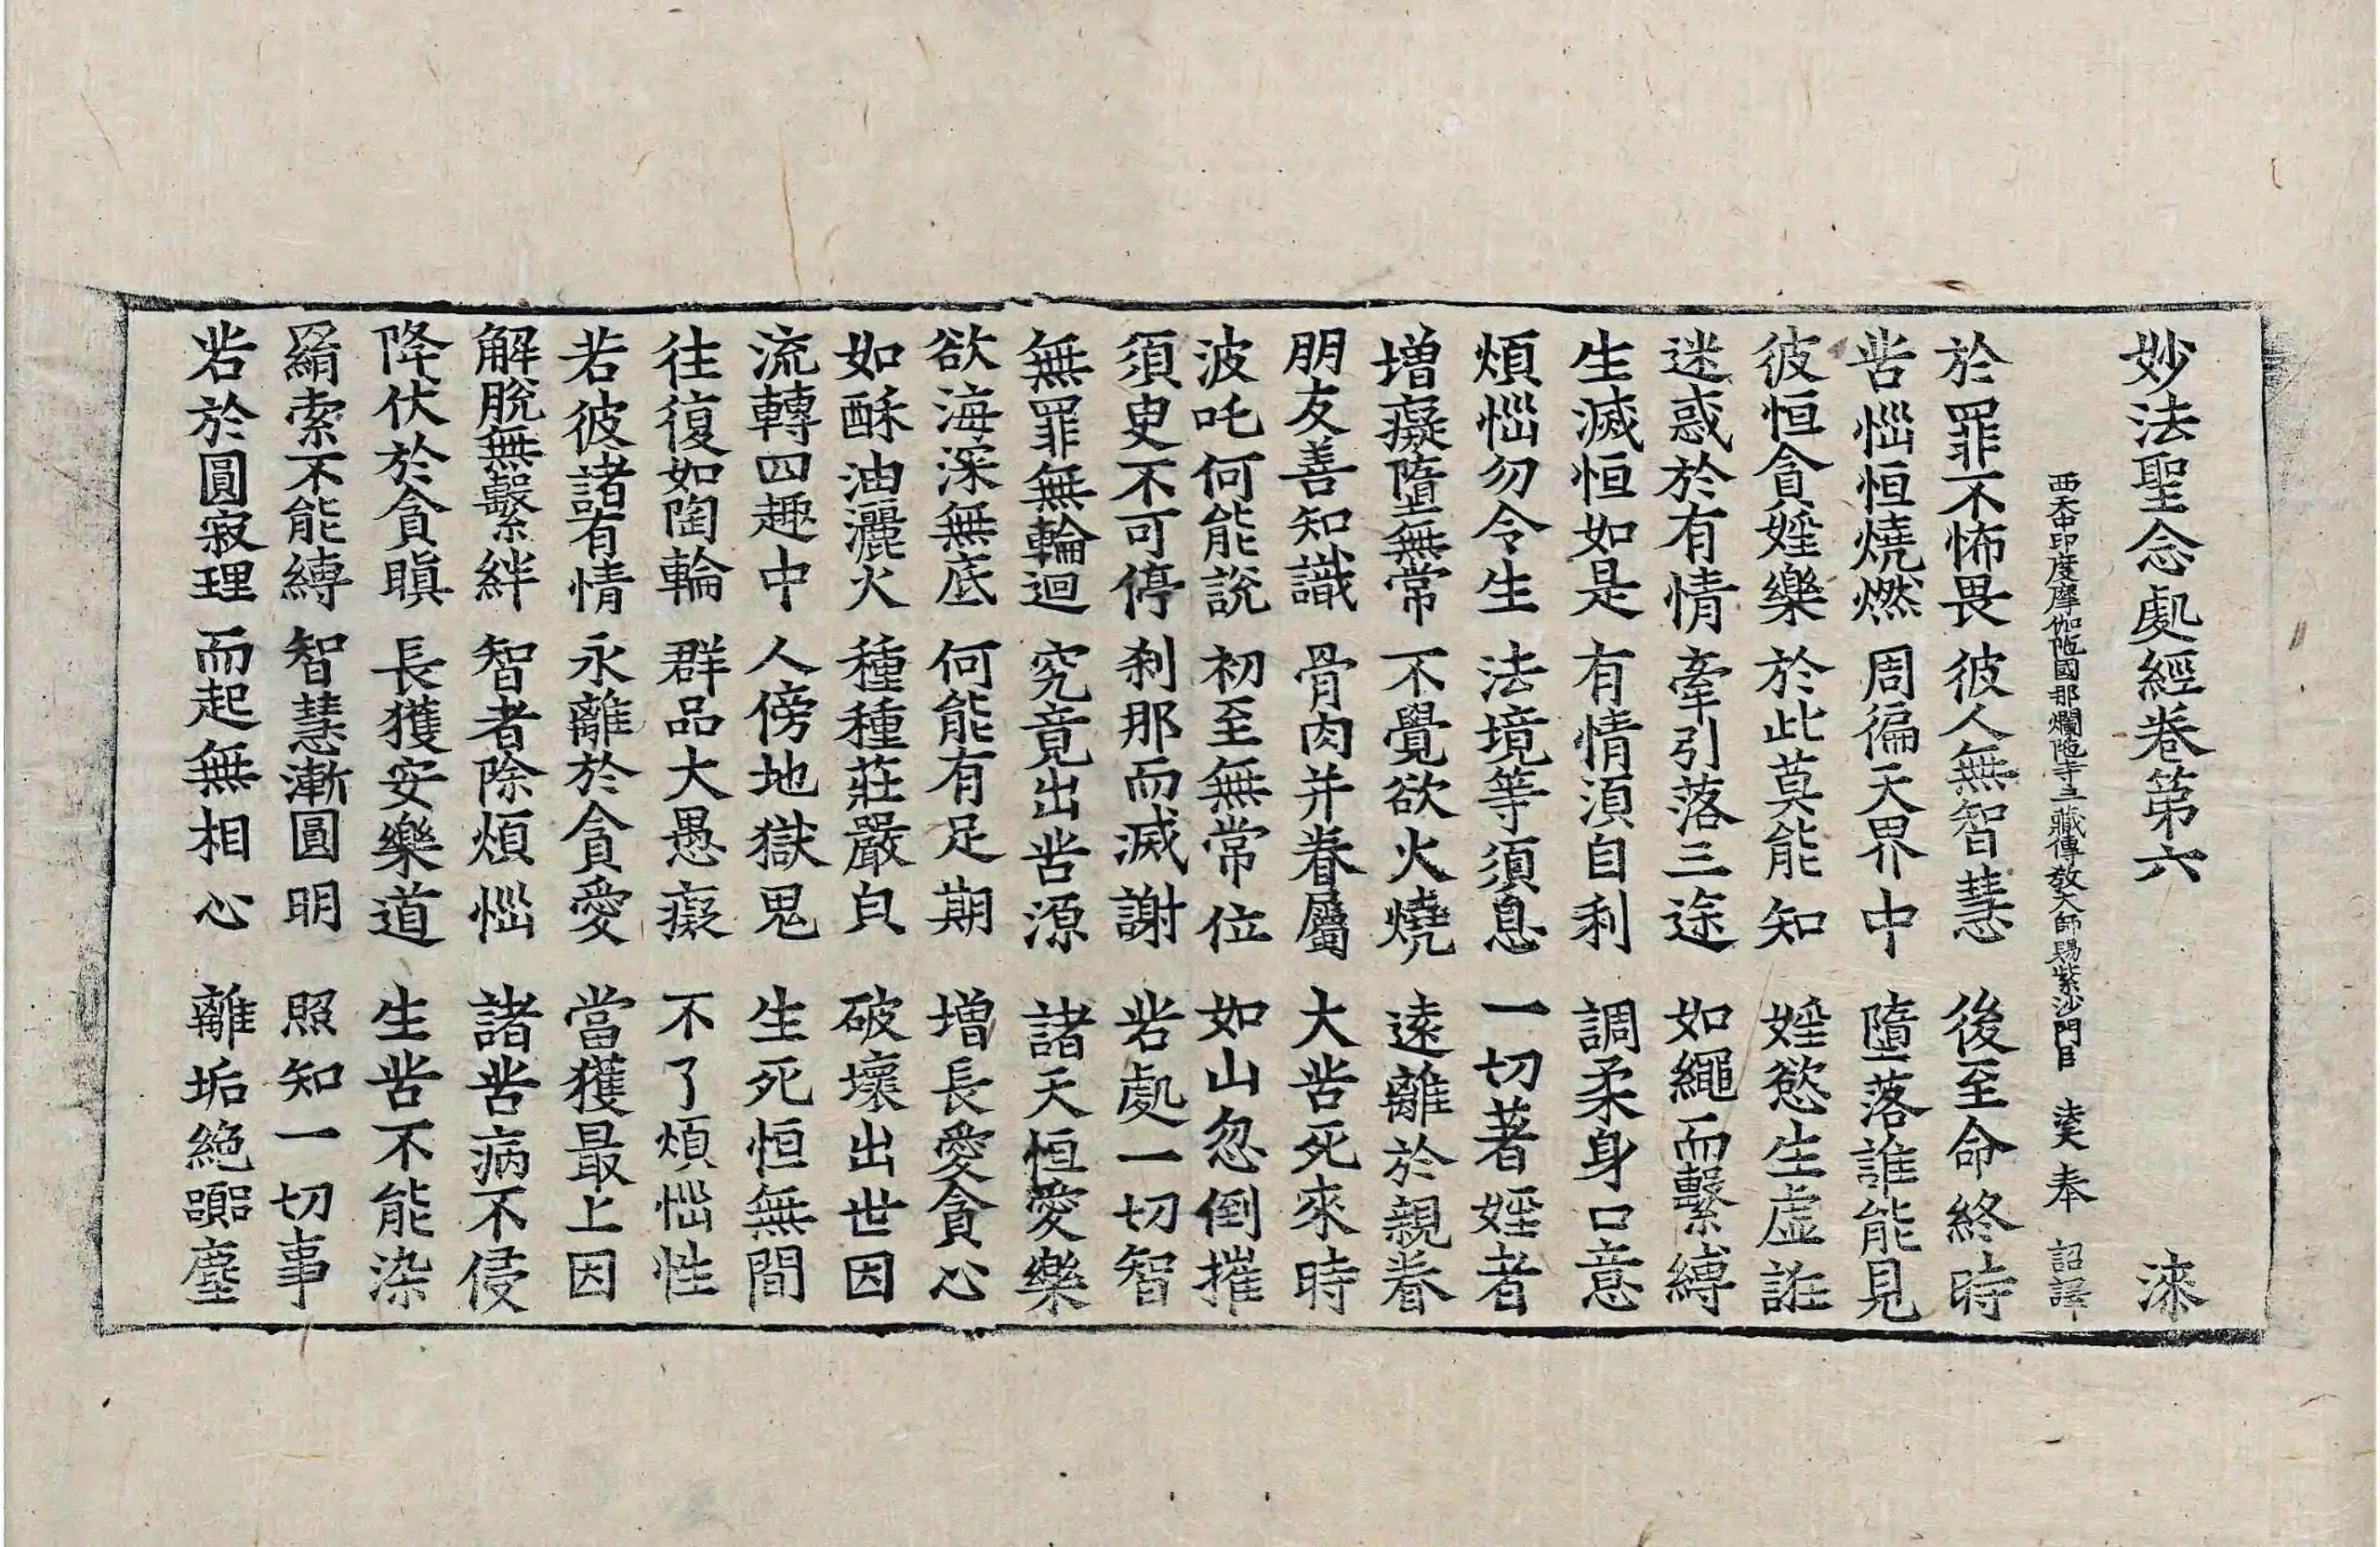 妙法聖念處經卷第六 漆
西天中印度摩伽陁國那爛陁寺三藏傳教大師賜紫沙門臣 法天 奉 詔譯
於罪不怖畏 彼人無智慧 後至命終時
苦惱恒燒燃 周徧天界中 墮落誰能見
彼恒貪婬樂 於此莫能知 婬慾生虛誑
迷惑於有情 牽引落三途 如繩而繫縛
生滅恒如是 有情湏自利 調柔身口意
煩惱勿令生 法境等須息 一切著婬者
增癡墮無常 不覺欲火燒 遠離於親眷
朋友善知識 骨肉并眷屬 大苦死來時
波吒何能說 初至無常位 如山忽倒摧
須臾不可停 剎那而滅謝 若處一切智
無罪無輪迴 究竟出苦源 諸天恒愛樂
欲海深無底 何能有足期 增長愛貪心
如酥油灑火 種種莊嚴具 破壞出世因
流轉四趣中 人傍地獄鬼 生死恒無間
往復如陶輪 群品大愚癡 不了煩惱性
若彼諸有情 永離於貪愛 當獲最上因
解脫無繫絆 智者除煩惱 諸苦病不侵
降伏於貪瞋 長獲安樂道 生苦不能染
羂索不能縛 智慧漸圓明 照知一切事
若於圓寂理 而起無相心 離垢絕囂塵